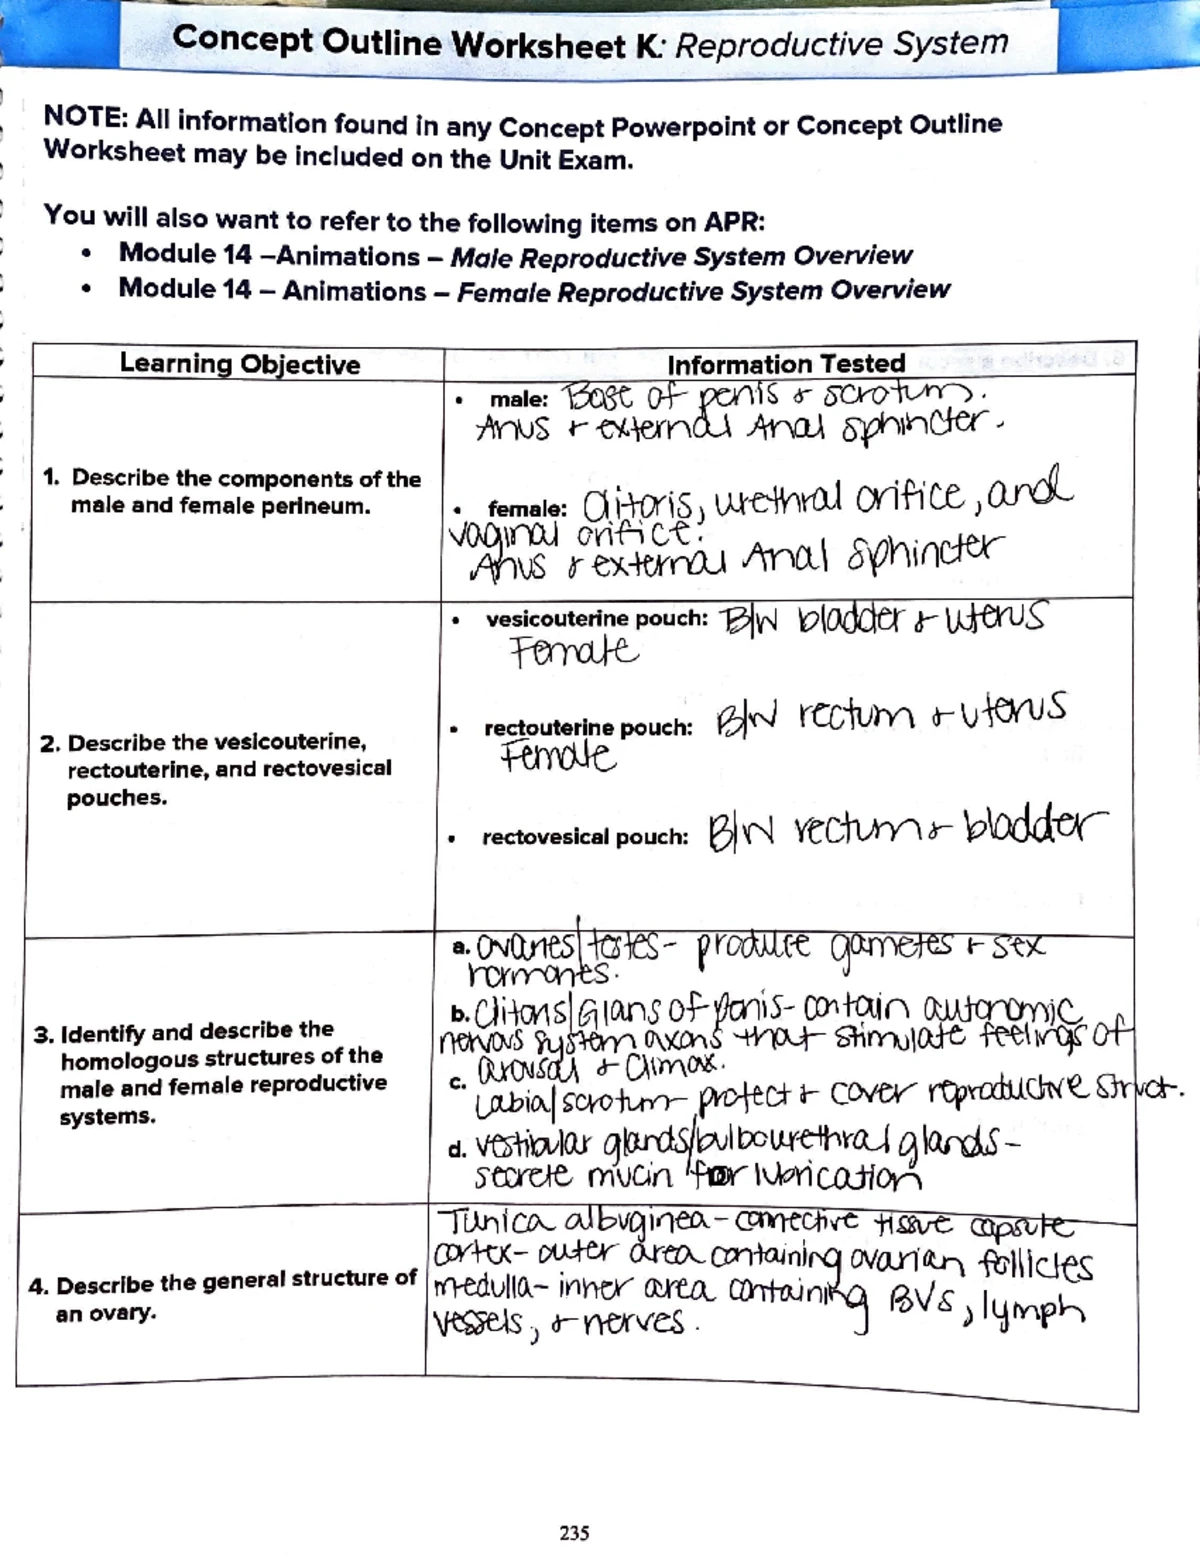 Concept Outline Worksheet K: Reproductive System
NOTE: All information found in any Concept Powerpoint or Concept Outline
Worksheet may be included on the Unit Exam.
You will also want to refer to the following items on APR:
• Module 14 –Animations – Male Reproductive System Overview
• Module 14 – Animations – Female Reproductive System Overview
Learning Objective
Information Tested
1. Describe the components of the
male and female perineum.
• male: Base of penis & scrotum.
Anus & external Anal sphincter.
• female: Clitoris, urethral orifice, and
vaginal orifice.
Anus & external Anal sphincter
2. Describe the vesicouterine,
rectouterine, and rectovesical
pouches.
• vesicouterine pouch: B/W bladder & uterus
Female
• rectouterine pouch: B/W rectum & uterus
Female
• rectovesical pouch: B/W rectum & bladder
3. Identify and describe the
homologous structures of the
male and female reproductive
systems.
a. ovaries/testes- produce gametes & sex
hormones.
b. Clitoris/Glans of penis- contain autonomic
nervous system axons that stimulate feelings of
arousal & climax.
c. Labia/scrotum- protect & cover reproductive struct.
d. vestibular glands/bulbourethral glands-
secrete mucin for lubrication
4. Describe the general structure of
an ovary.
Tunica albuginea- connective tissue capsule
cortex- outer area containing ovarian follicles
medulla- inner area containing BVs, lymph
vessels, & nerves.
235